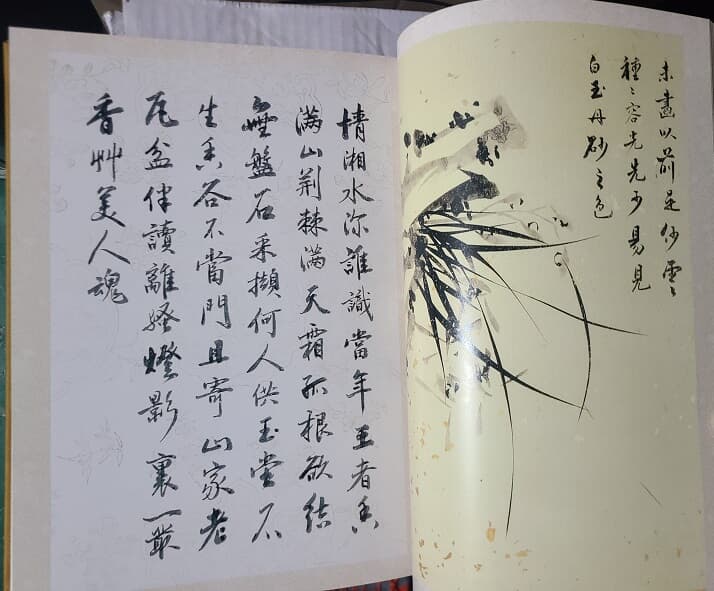 未畫以前
種〻容先易見
白玉丹砂之色
情湘水深誰識當年王者香
滿山荊棘滿天霜孤根欲結
無盤石采擷何人供玉堂不
生谷不當門且寄山家老
瓦盆伴讀離騷燈影裏一叢
香艸美人魂